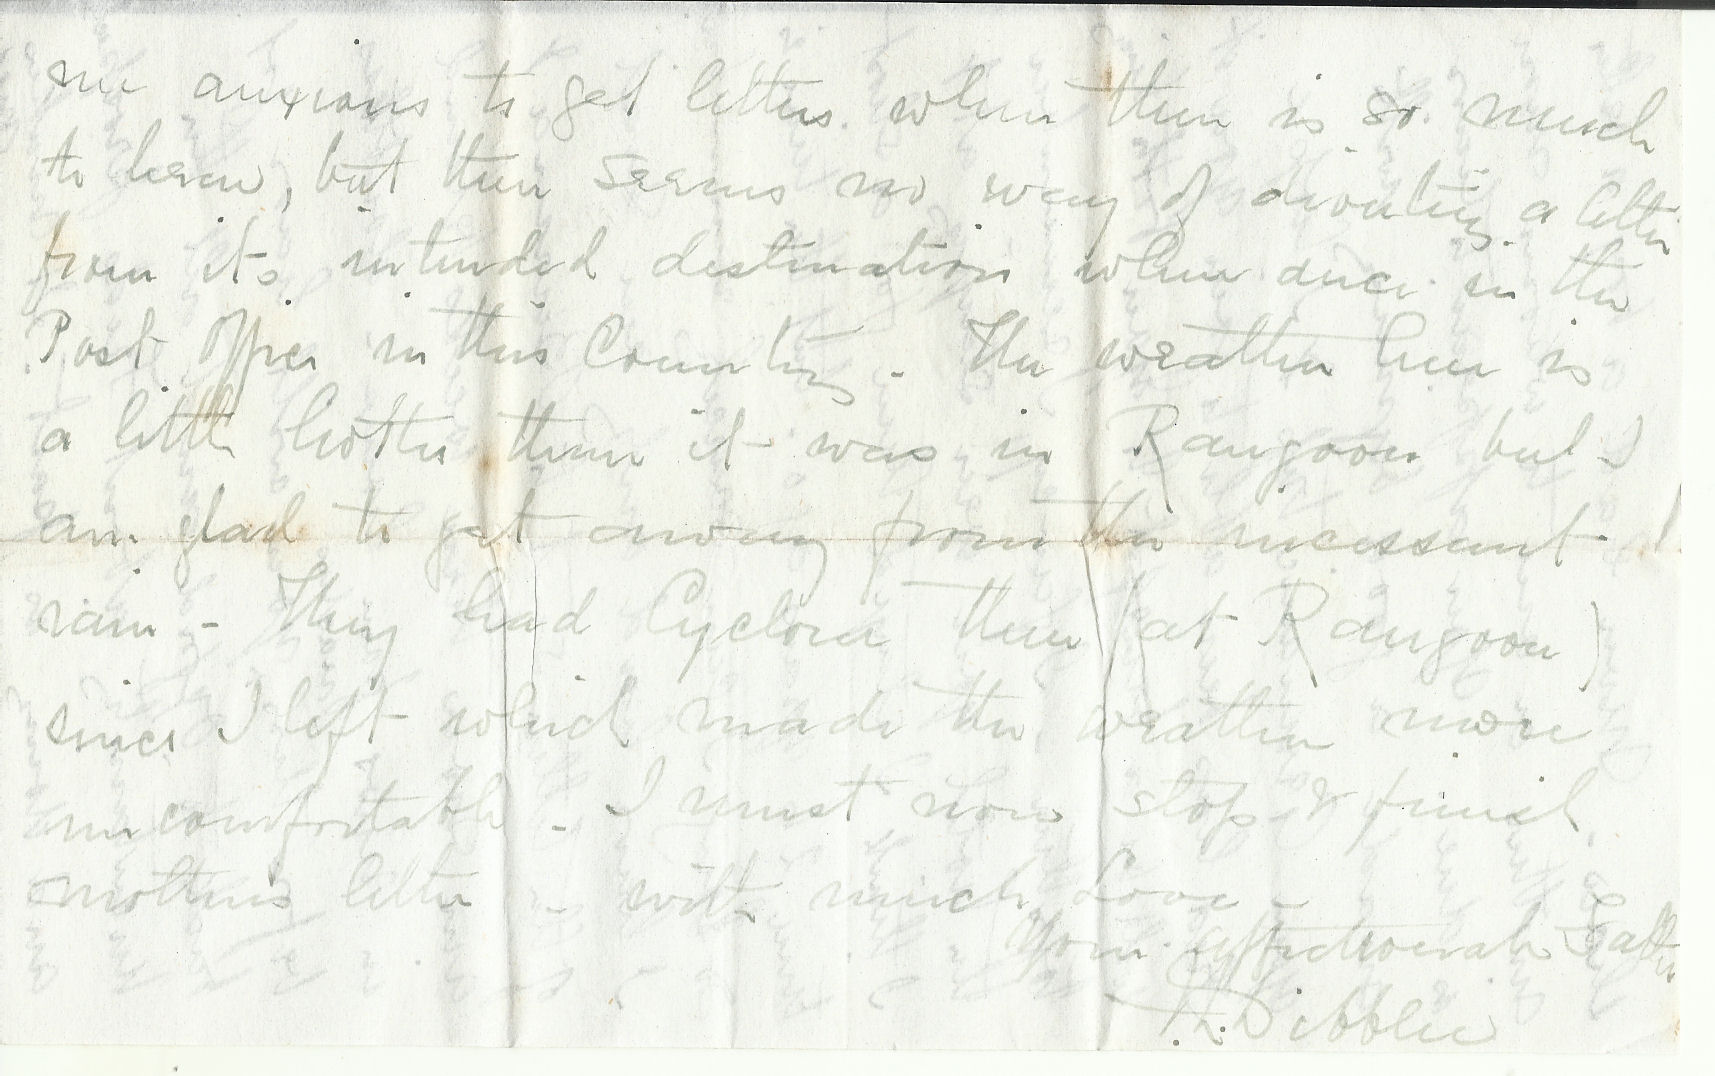 me anxious to get letters when there is so much
to learn, but there seems no way of diverting a letter
from its intended destination when once in the
Post Office in this Country. The weather here is
a little hotter than it was in Rangoon but I
am glad to get away from the incessant
rain - They had Cyclone there (at Rangoon)
since I left which made the weather more
uncomfortable - I must now stop & finish
mothers letter - with much Love -
Your affectionate Father
Dibblee